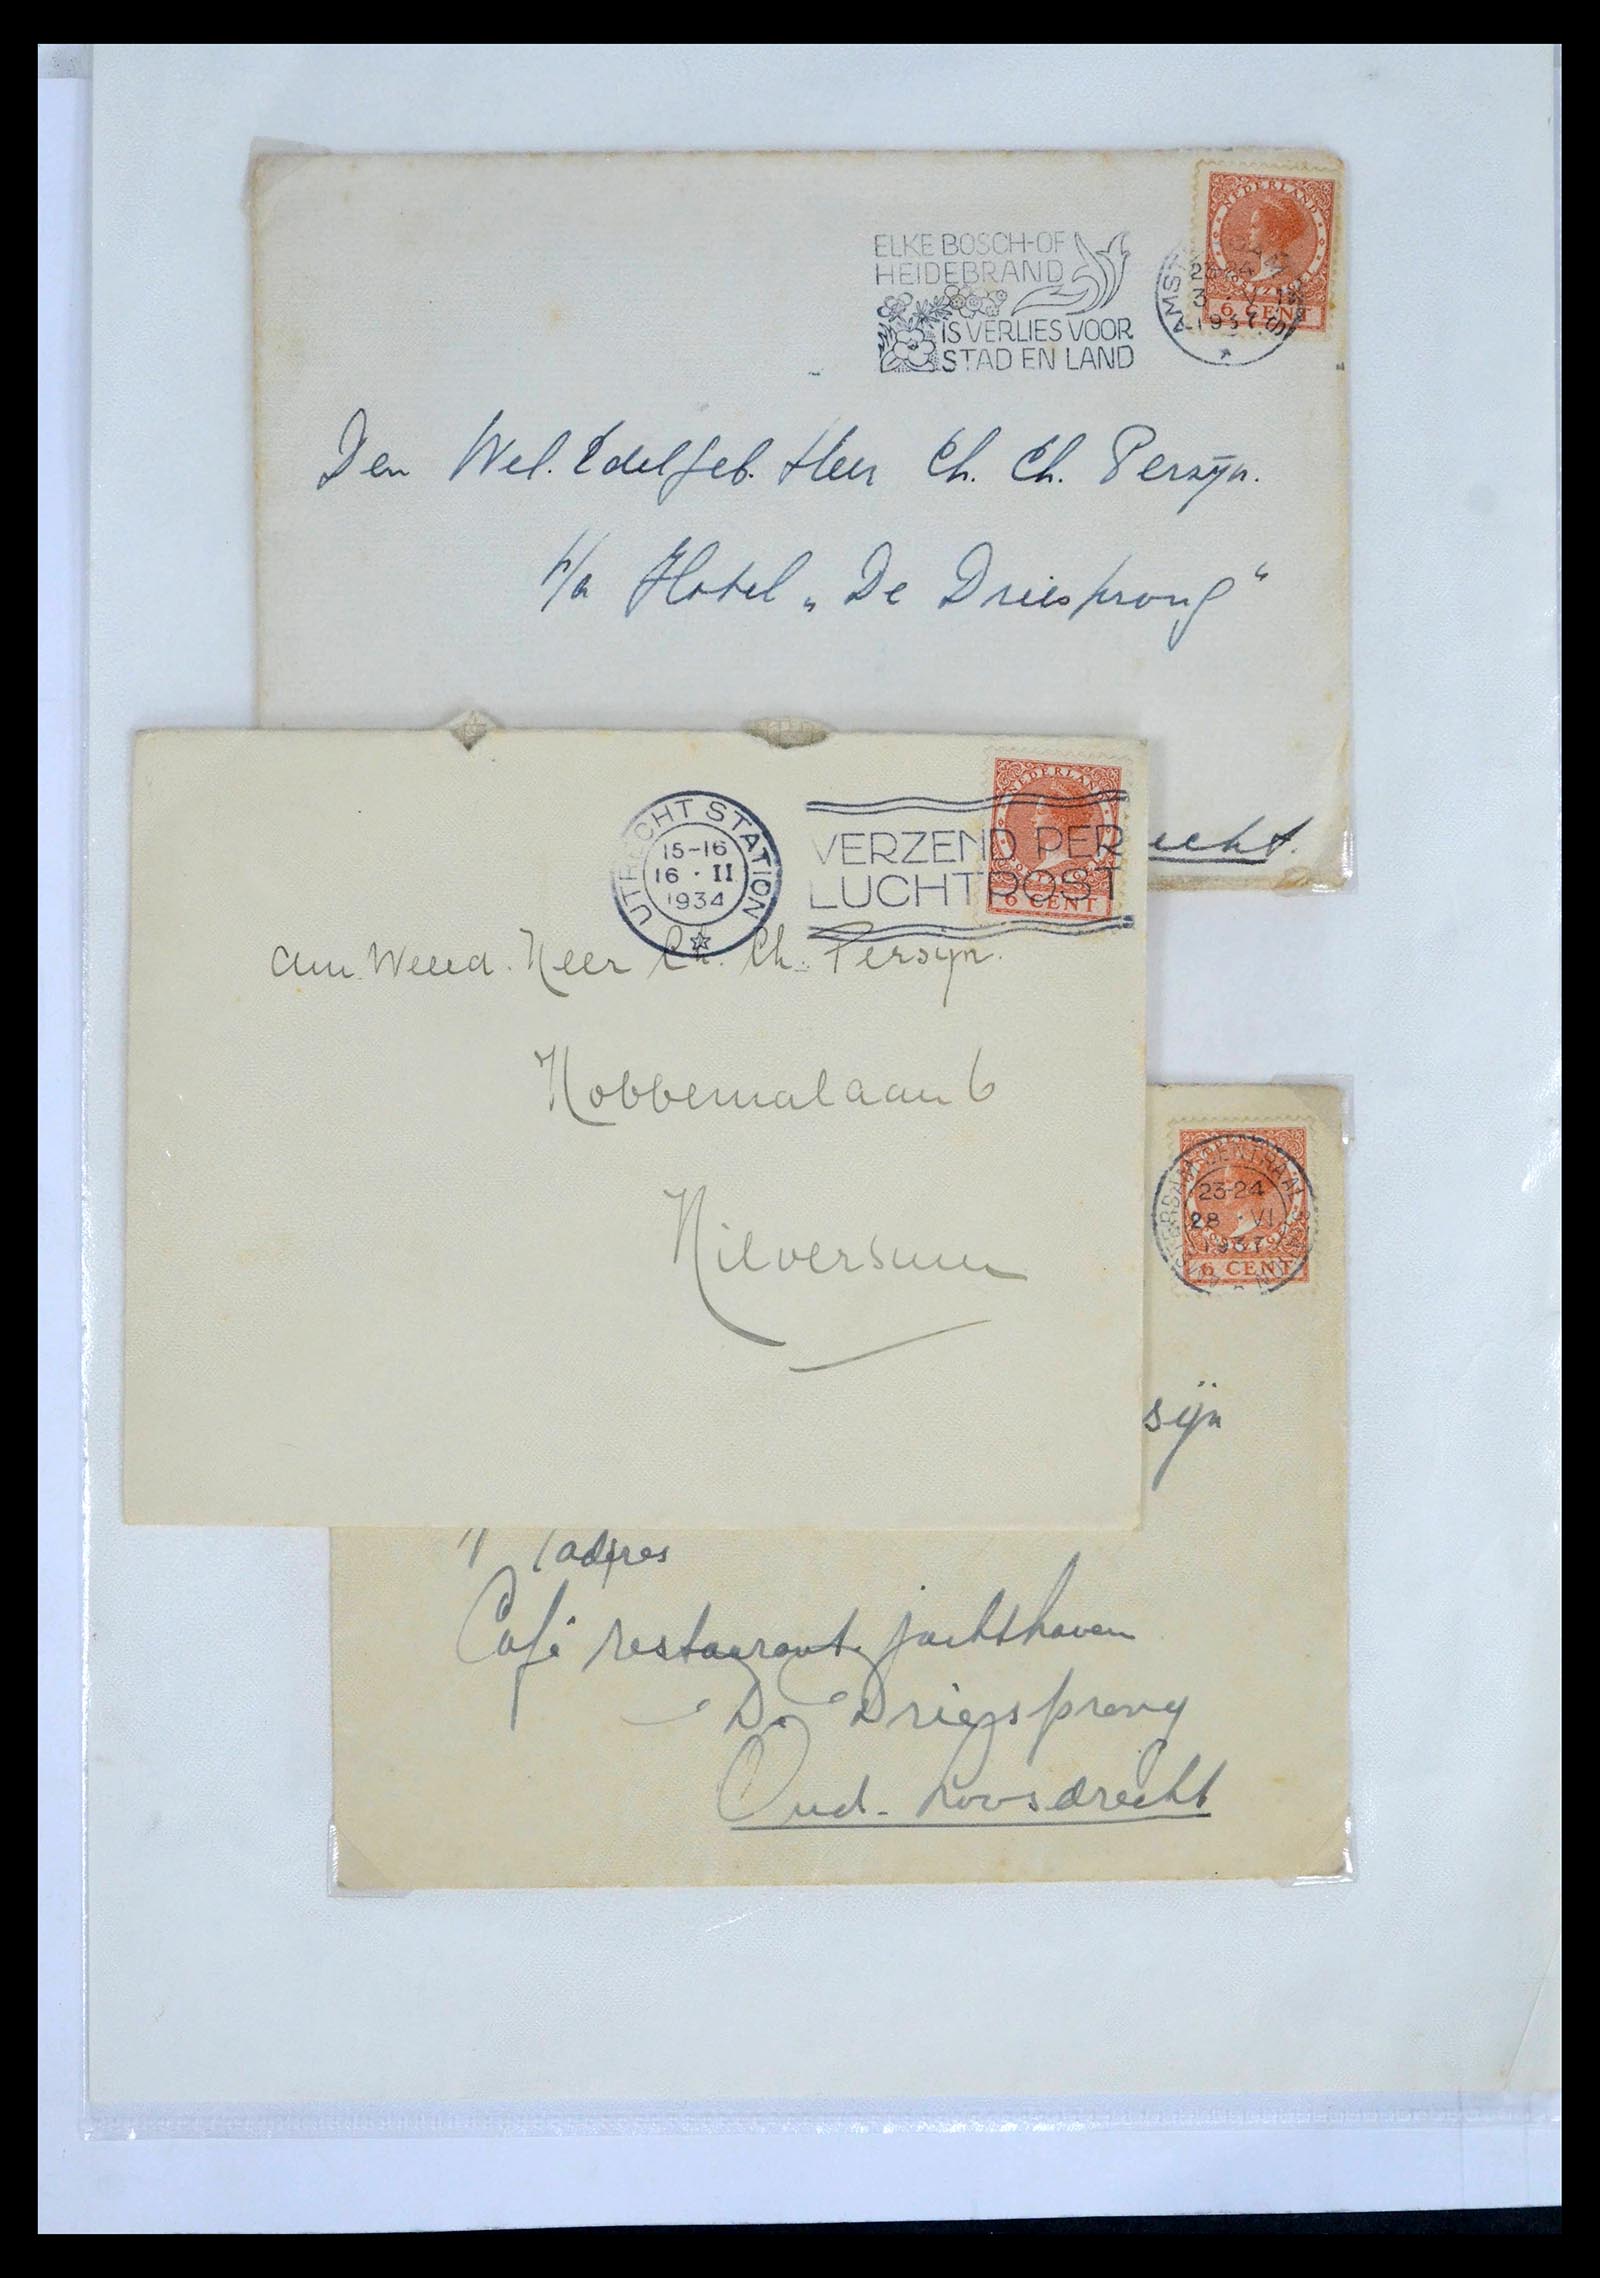 NEDERLAND
6 CENT
ELKE BOSCH-OF
HEIDEBRAND
IS VERLIES VOOR
STAD EN LAND
1937
Den Wel. Edelgeb. Heer Ch. Ch. Persijn.
p/a Hotel „De Driesprong"
echt.
NEDERLAND
6 CENT
UTRECHT STATION
15-16
16 · II
1934
VERZEND PER
LUCHTPOST
Heer Ch. Ch. Persijn.
Hobbemalaan 6
Hilversum
AMSTERDAM CENTRAAL STATION
23-24
28 · VI
1937
6 CENT
sijn
adres
Café restaurant jachthaven
De Driesprong
Oud-Loosdrecht